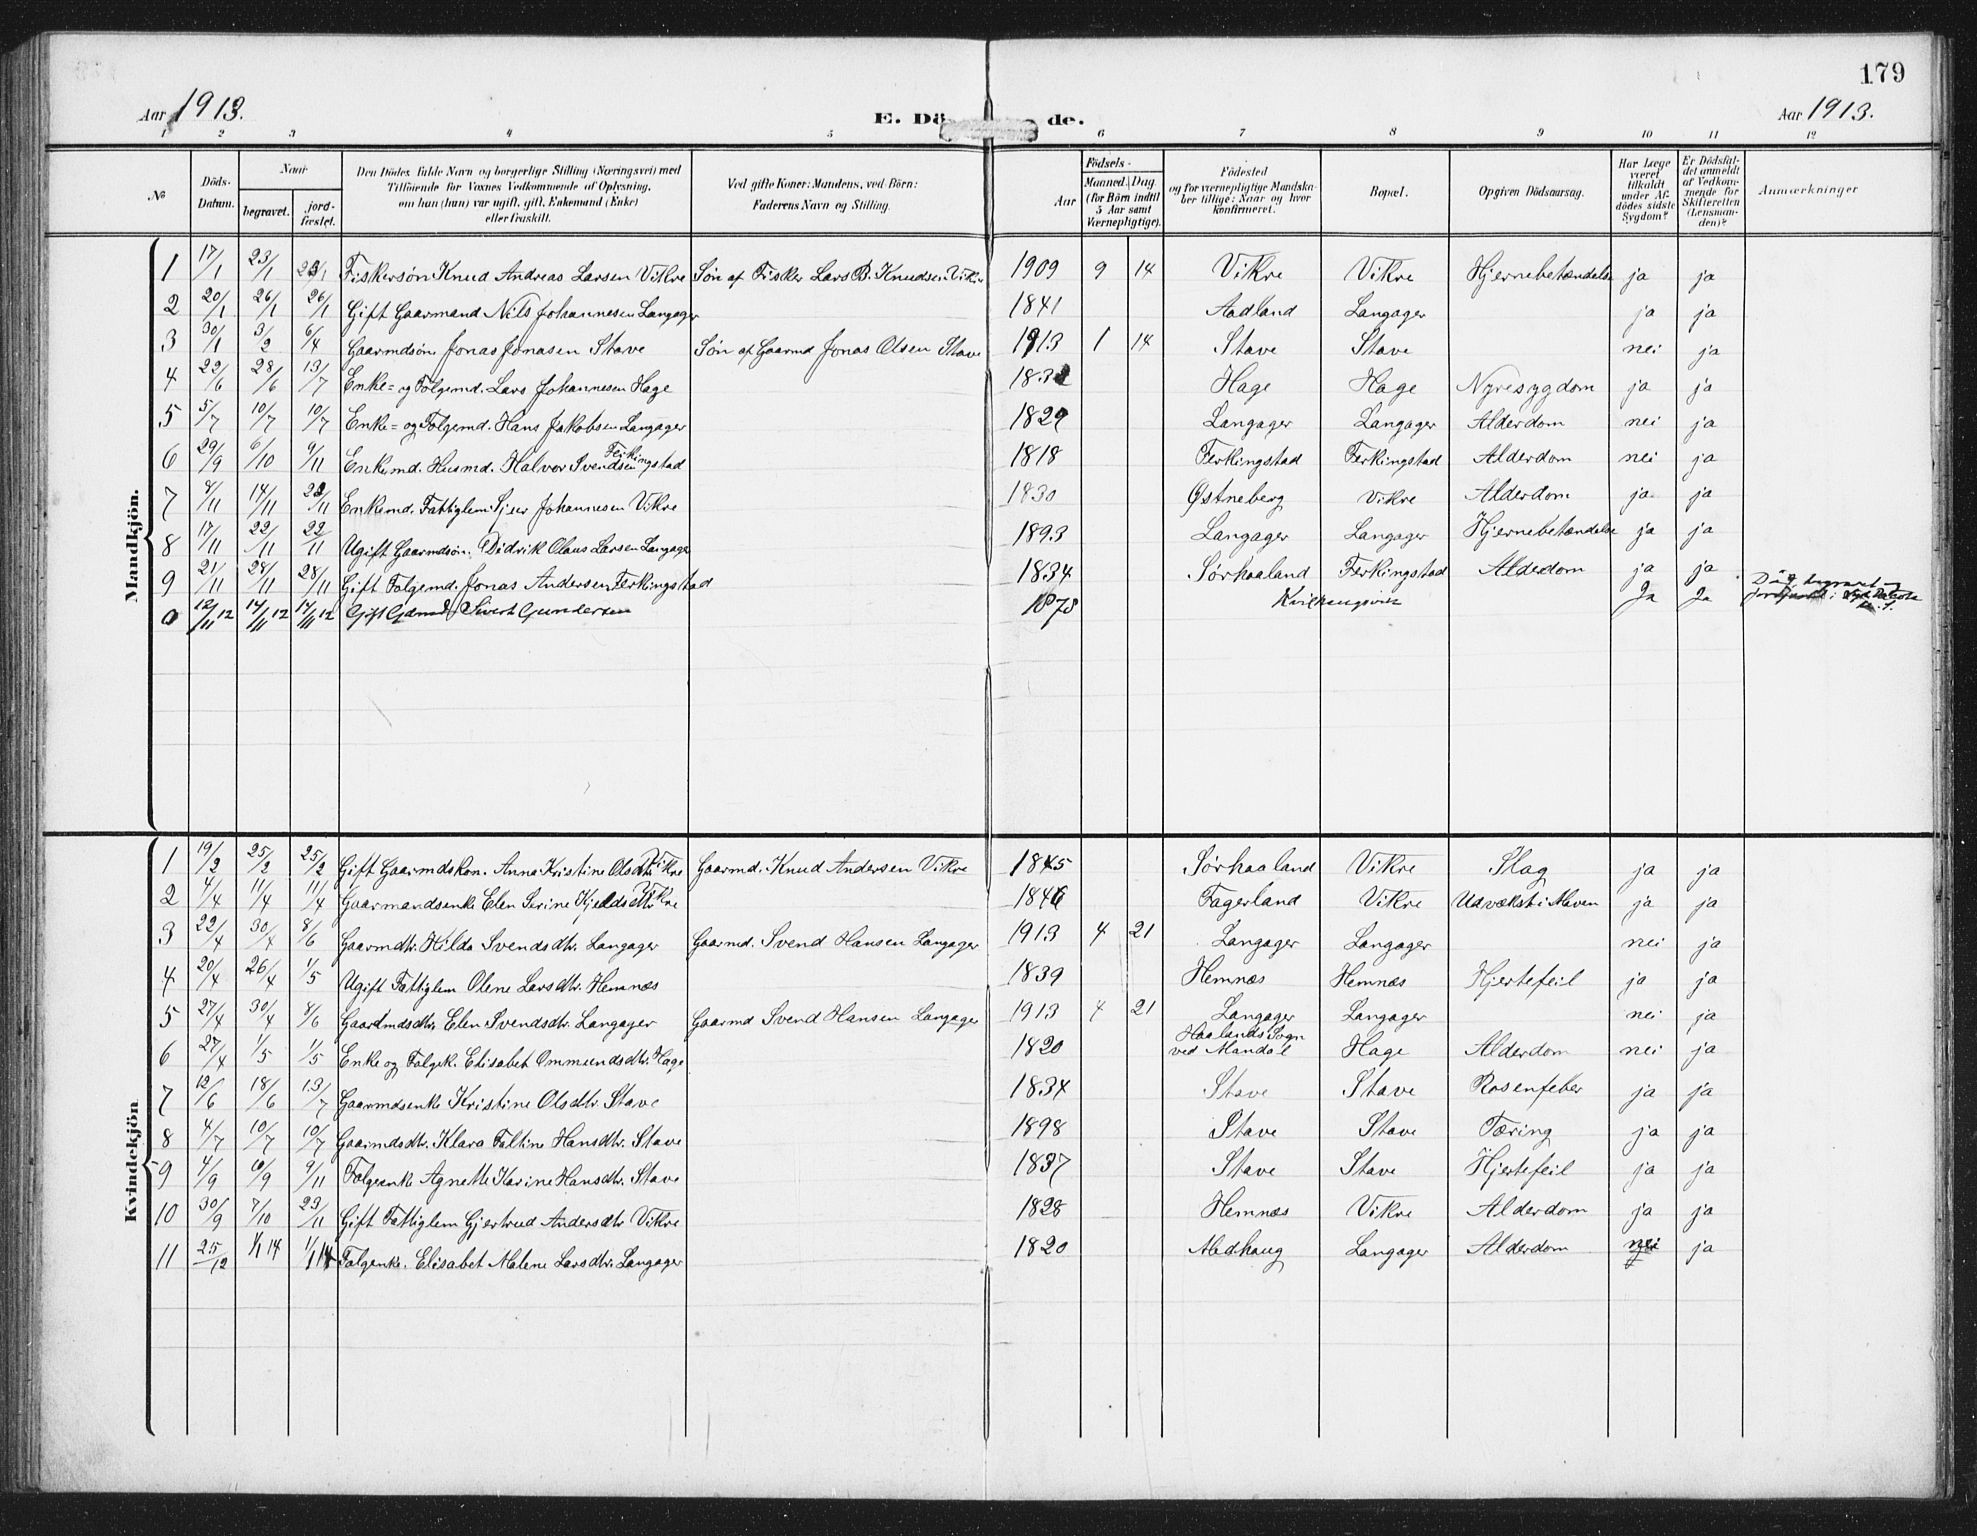 179
Aar 1913. E. Dö de. Aar 1913.
1 2 3 4 5 6 7 8 9 10 11 12
No
Döds-Datum.
Naar
begravet.
jord-fæstet.
Den Dödes fulde Navn og borgerlige Stilling (Næringsvei) med
Tilföiende for Voxnes Vedkommende af Oplysning,
om han (hun) var ugift, gift, Enkemand (Enke)
eller fraskilt.
Ved gifte Koner: Mandens, ved Börn:
Faderens Navn og Stilling.
Födsels-
Aar
Maaned. Dag
(for Börn indtil
5 Aar samt
Værnepligtige).
Födested
og for værnepligtige Mandska-
ber tillige: Naar og hvor
konfirmeret.
Bopæl.
Opgiven Dödsaarsag.
Har Læge
været
tilkaldt
under Af-
dödes sidste
Sygdom?
Er Dödsfal-
det anmeldt
af Vedkom-
mende for
Skifteretten
(Lensman-
den)?
Anmærkninger
Mandkjön.
1 17/1 23/1 23/1 Fiskersøn Knud Andreas Larsen Vikre Søn af Fisker Lars B. Knudsen Vikre 1909 9 14 Vikre Vikre Hjernebetændelse ja ja
2 20/1 26/1 26/1 Gift Gaarmand Nils Johannesen Langager 1841 Aadland Langager ja ja
3 30/1 3/2 6/4 Gaarmdsøn Jonas Jonasen Stave Søn af Gaarmd Jonas Olsen Stave 1913 1 14 Stave Stave nei ja
4 22/6 28/6 13/7 Enke= og Følgemd. Lars Johannesen Hage 1832 Hage Hage Nyresygdom ja ja
5 5/7 10/7 10/7 Enke= og Følgemd. Hans Jakobsen Langager 1829 Langager Langager Alderdom nei ja
6 29/9 6/10 9/11 Enkemd. Husmd. Halvor Svendsen Ferkingstad 1818 Ferkingstad Ferkingstad Alderdom nei ja
7 8/11 14/11 23/11 Enkemd. Fattiglem Sjur Johannesen Vikre 1830 Østneberg Vikre Alderdom ja ja
8 17/11 22/11 22/11 Ugift Gaarmdsøn. Didrik Olaus Larsen Langager 1893 Langager Langager Hjernebetændelse ja ja
9 21/11 28/11 28/11 Gift Følgemd. Jonas Andersen Ferkingstad 1834 Sørhaaland Ferkingstad Alderdom ja ja
0 12/11 12 14/11 12 14/11 12 Gift Gdmd. Sivert Gundersen 1878 Kvilhaugsvik Ja Ja
Kvindekjön
1 19/2 25/2 25/2 Gift Gaarmdskon. Anna Kristine Olsdtr. Vikre Gaarmd. Knud Andersen Vikre 1845 Sørhaaland Vikre Slag ja ja
2 4/4 11/4 11/4 Gaarmandsenke Elen Serine Kjeldsdtr. Vikre 1846 Fagerland Vikre Udvækst i Maven ja ja
3 22/4 30/4 8/6 Gaarmdtr. Hilda Svendsdtr. Langager Gaarmd. Svend Hansen Langager 1913 4 21 Langager Langager nei ja
4 20/4 26/4 1/5 Ugift Fattiglem Olene Larsdtr. Hemnæs 1839 Hemnæs Hemnæs Hjertefeil ja ja
5 27/4 30/4 8/6 Gaardmdsdtr. Elen Svendsdtr. Langager Gaarmd Svend Hansen Langager 1913 4 21 Langager Langager nei ja
6 27/4 1/5 1/5 Enke og Følgek. Elisabet Ommundsdtr. Hage 1820 Haalands Sogn ved Mandal Hage Alderdom nei ja
7 12/6 18/6 13/7 Gaarmdsenke Kristine Olsdtr. Stave 1834 Stave Stave Rosenfeber ja ja
8 4/7 10/7 10/7 Gaarmdsdtr. Klara Faltine Hansdtr. Stave 1898 Stave Stave Tæring ja ja
9 4/9 10/9 9/11 Følgeenke Agnette Karine Hansdtr. Stave 1837 Stave Stave Hjertefeil ja ja
10 30/9 7/10 23/11 Gift Fattiglem Gjertrud Andersdtr. Vikre 1828 Hemnæs Vikre Alderdom ja ja
11 25/12 1/1 14 1/1 14 Følgenke. Elisabet Malene Larsdtr. Langager 1820 Medhaug Langager Alderdom nei ja